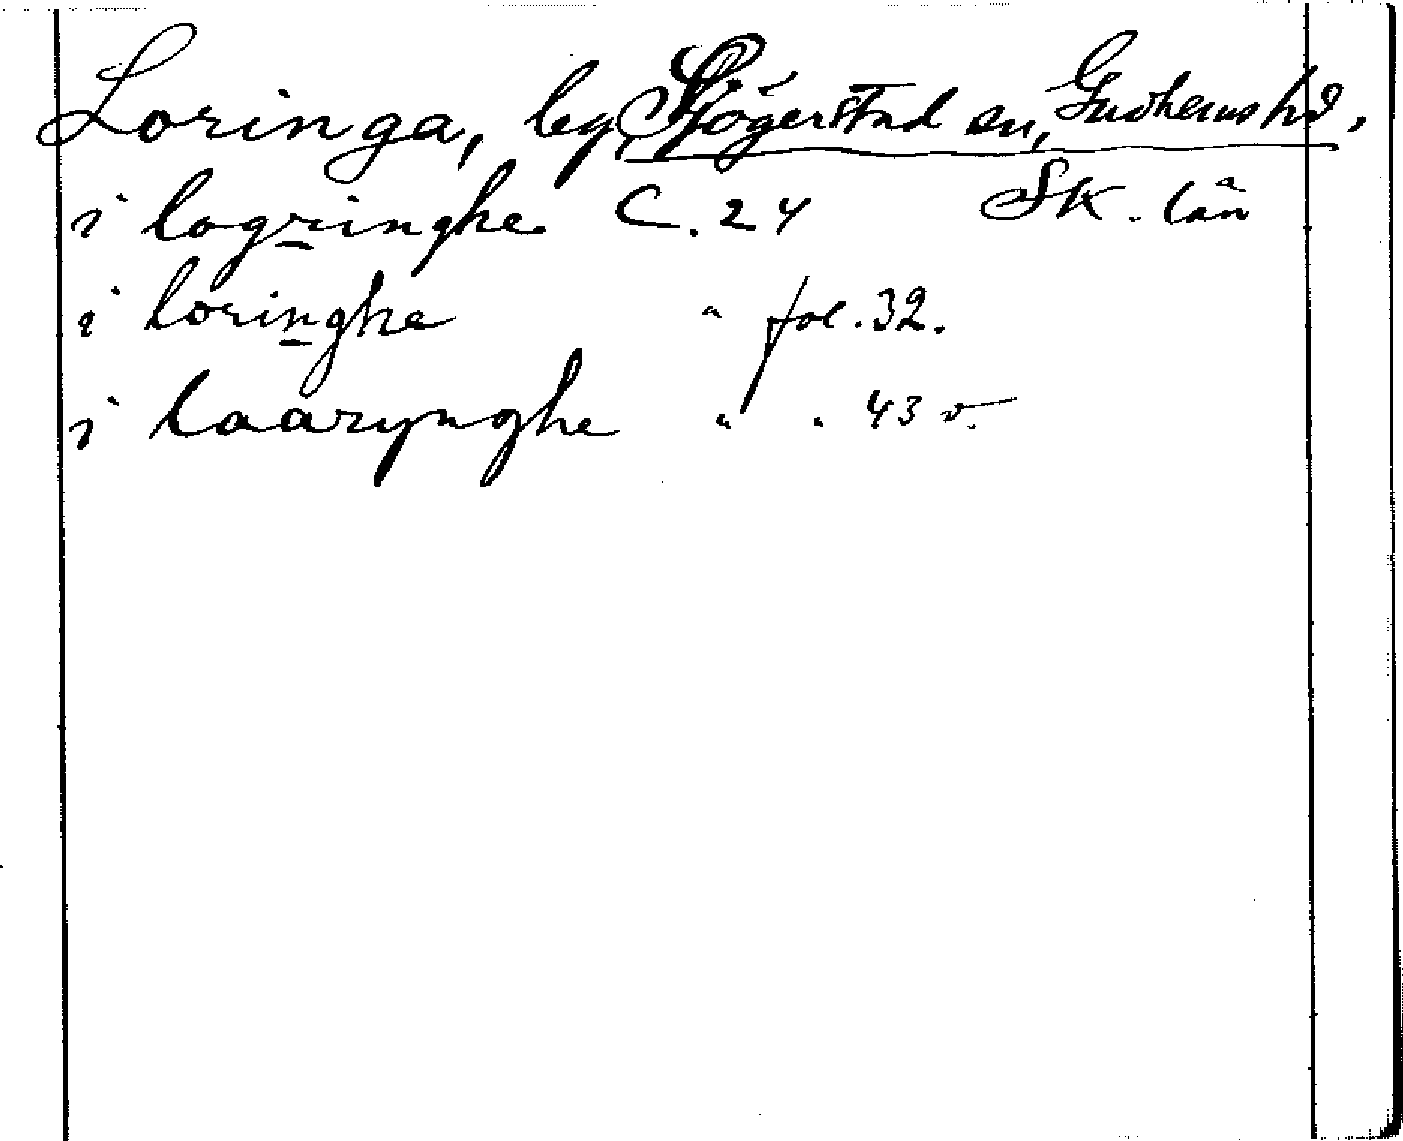 Loringa, by, Sjögerstad sn, Gudhems hd,
i logringhe C. 24 Sk. län
i loringhe " fol. 32.
i laarynghe " " 43 v.